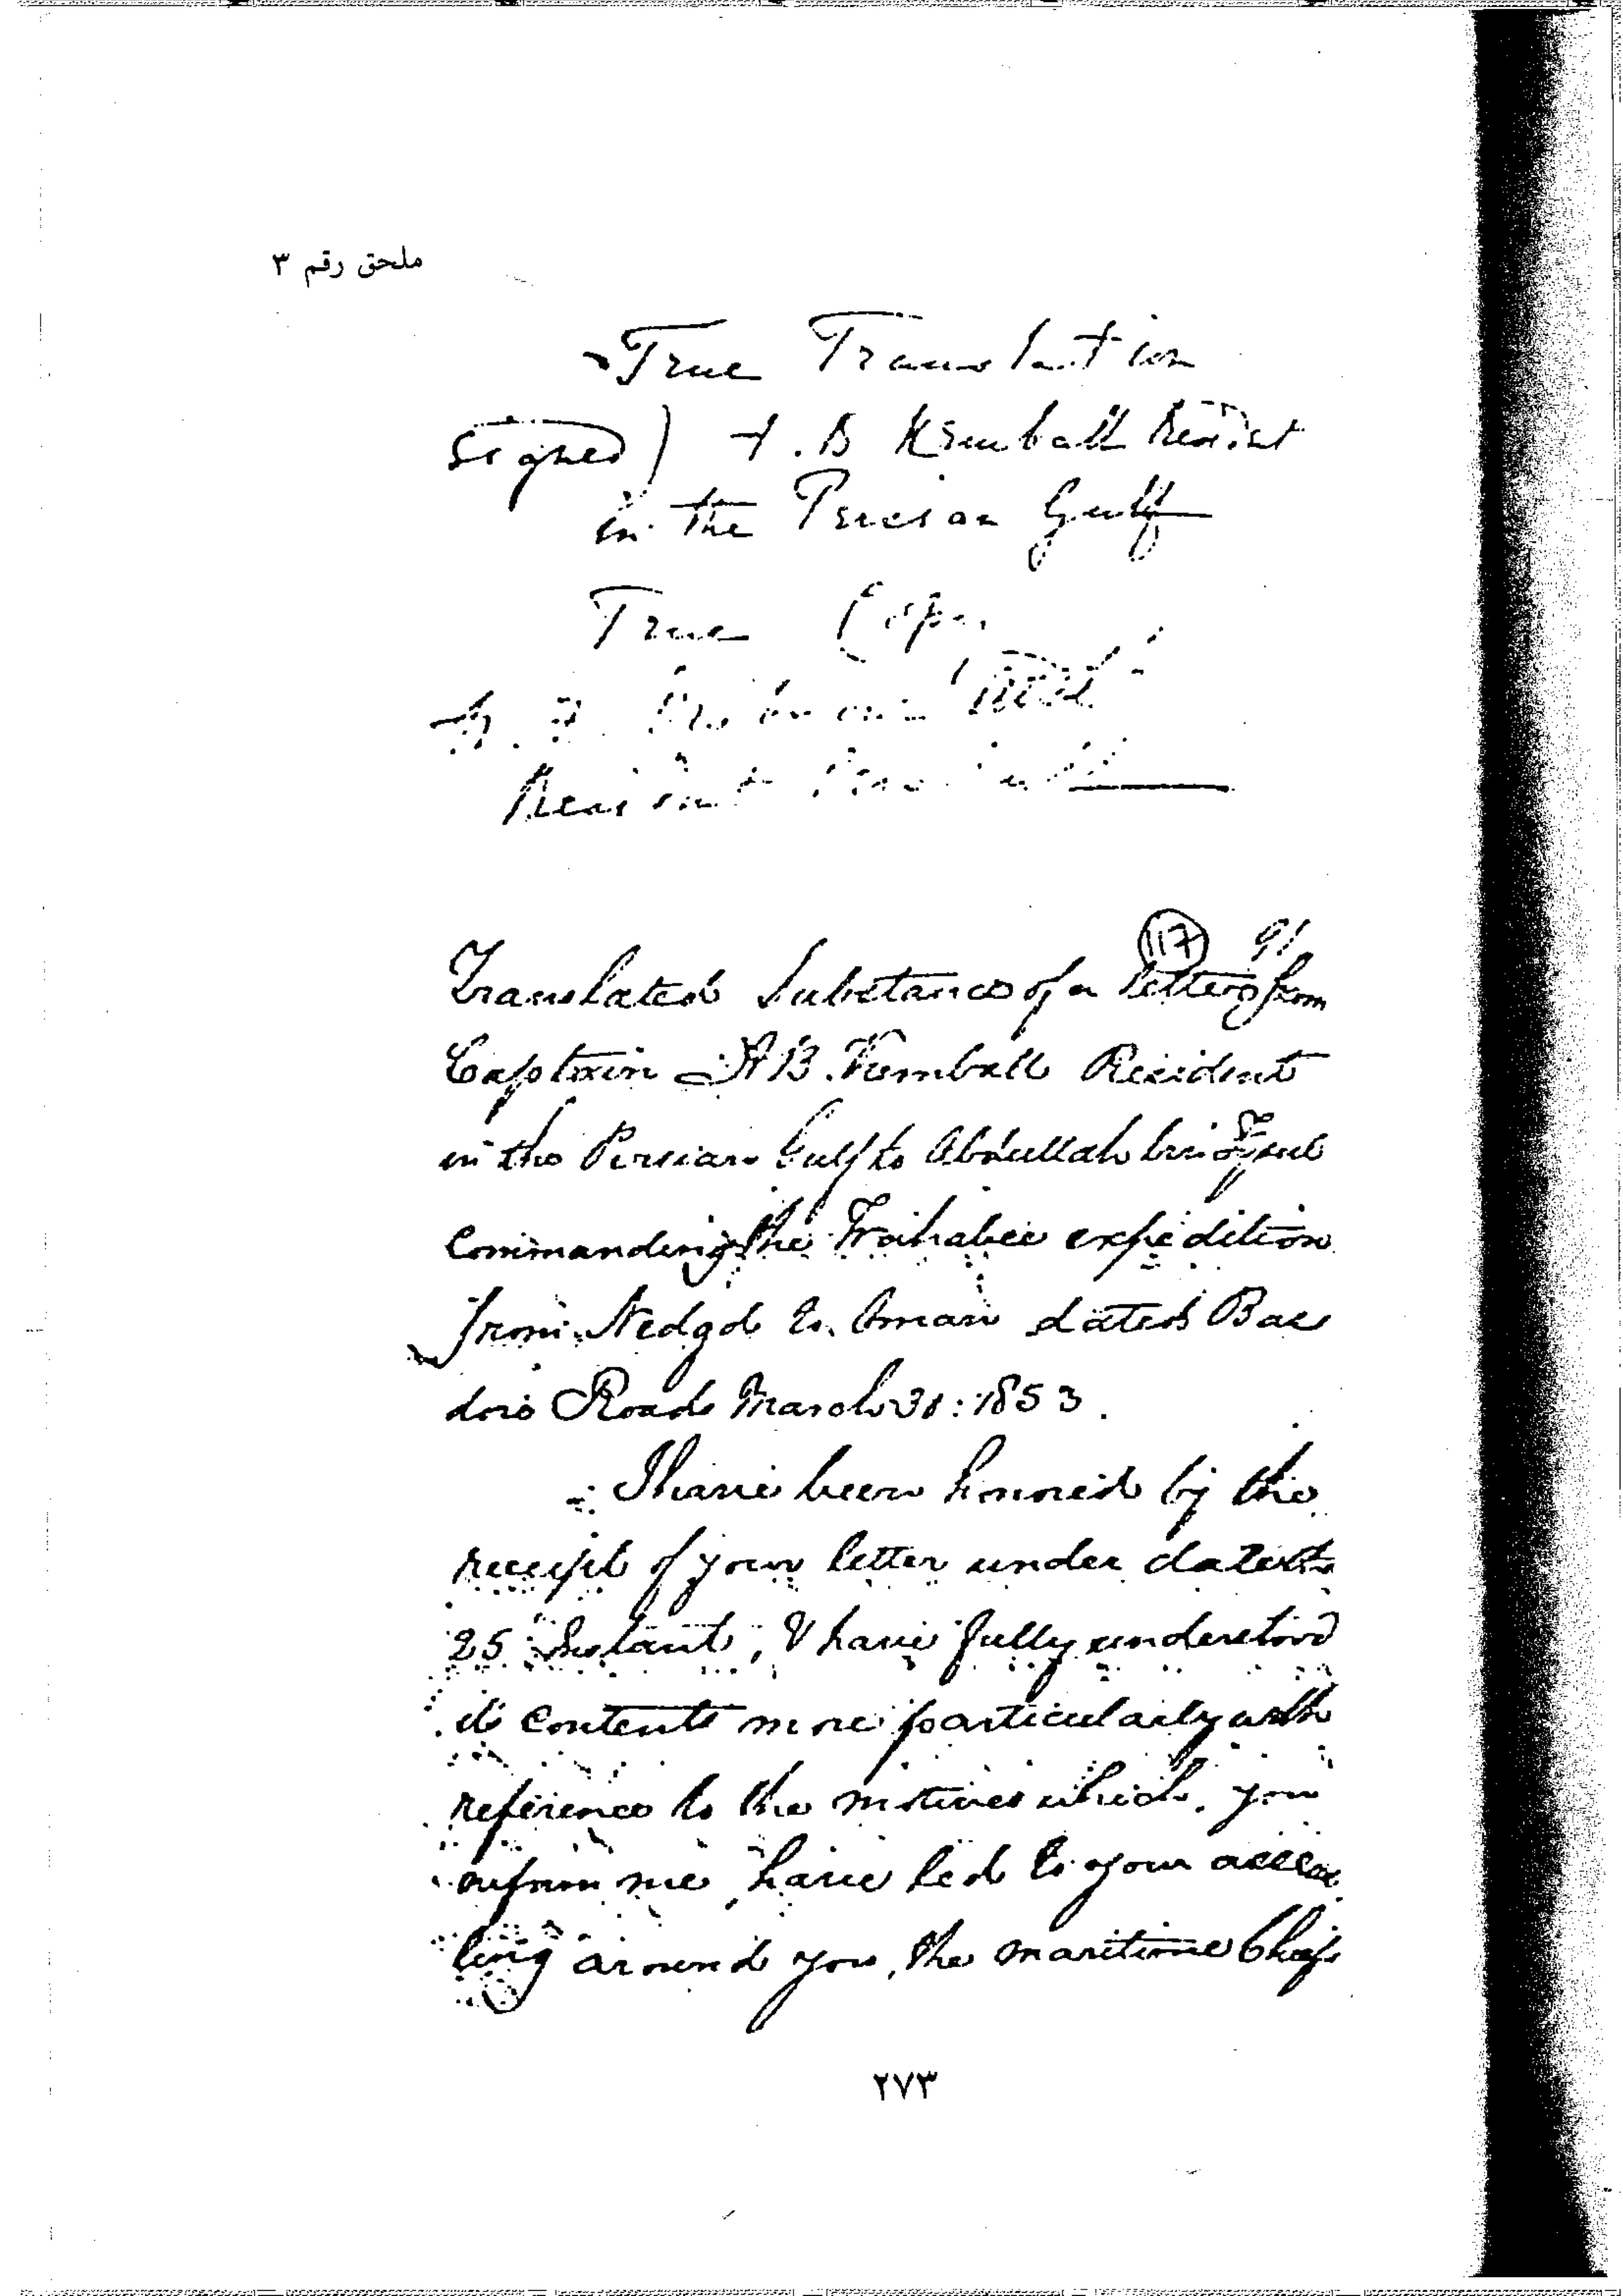 ملحق رقم ٣
True Translation
Signed) A. B Kemball Resdt
in the Persian Gulf
True Copy
A. B.
Resident
(117) 91
Translated Substance of a letter from
Captain A B. Kemball Resident
in the Persian Gulf to Abdullah bin Fysul
Commanding the Wahabee expedition
from Nedgd to Oman dated Bas
dore Roads March 31: 1853.
I have been honored by the
receipt of your letter under date the
25 Instant, & have fully understood
its contents more particularly with
reference to the motives which you
inform me have led to your assem
bling around you, the maritime Chiefs
٢٧٣